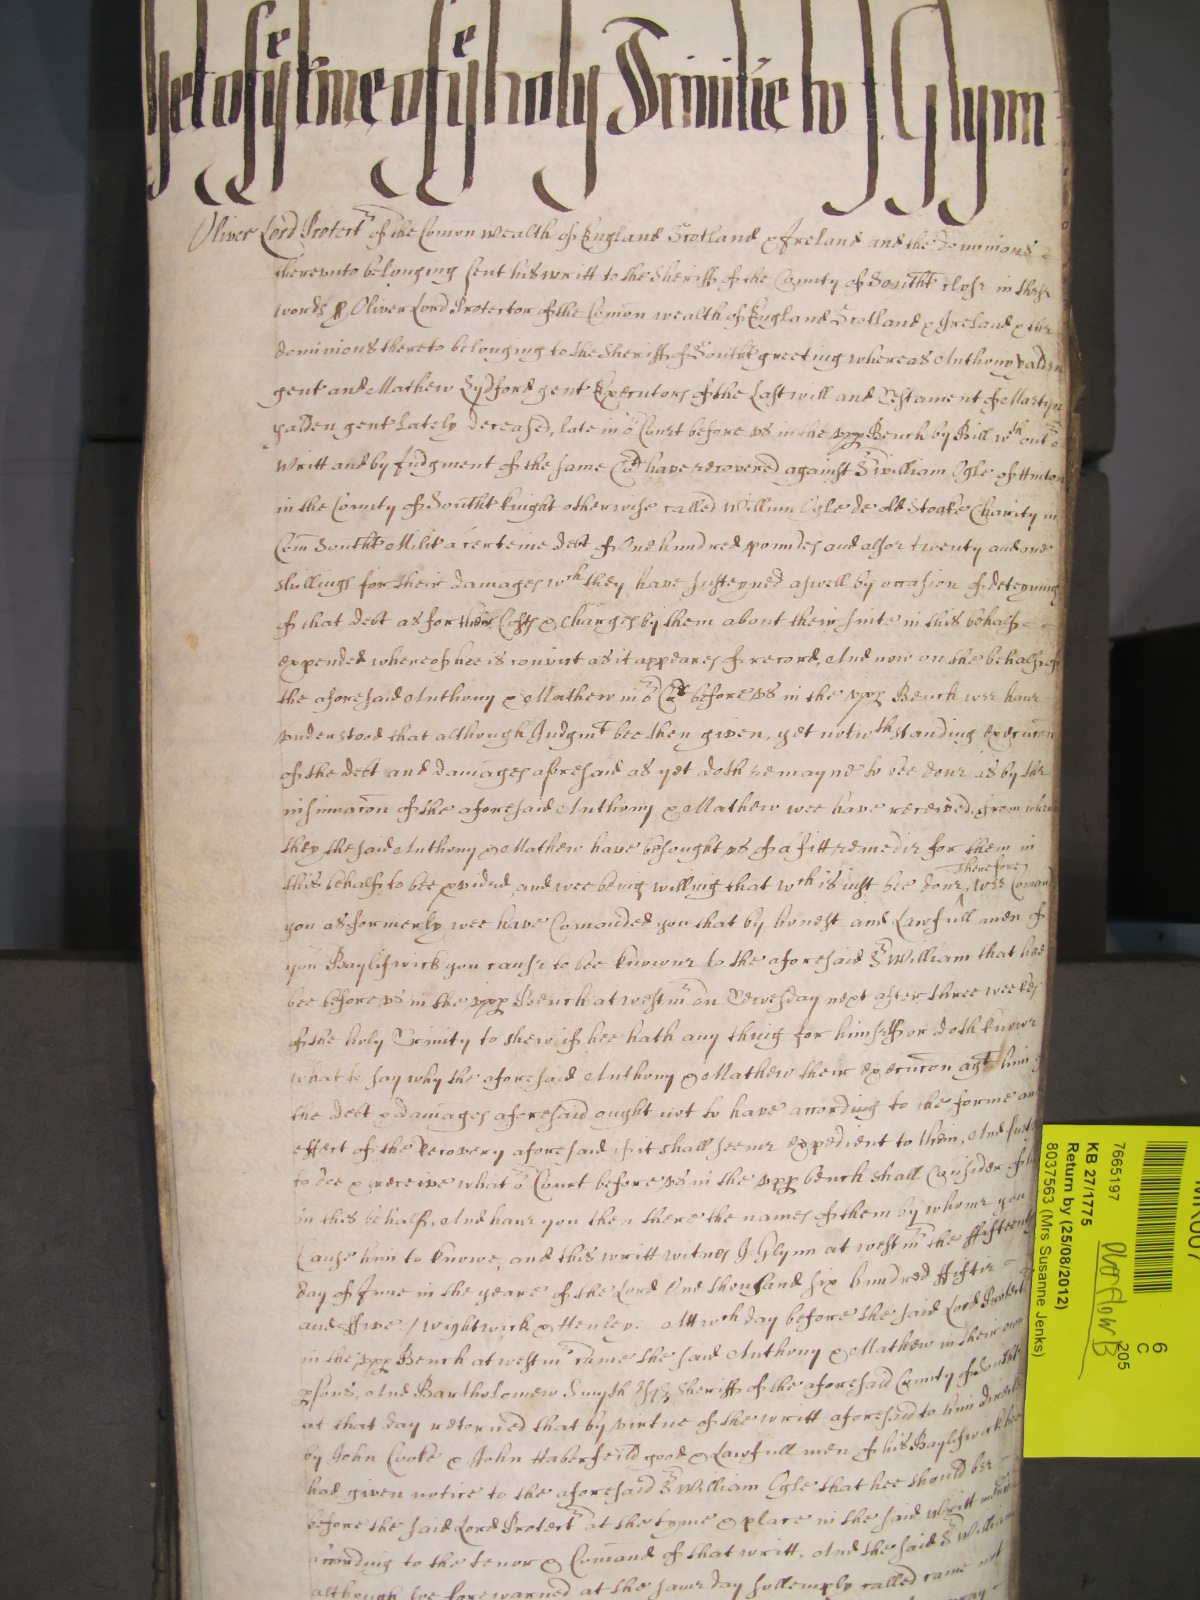 Yet of ye tyme of ye holy Trinitie by J Glynn
Oliver Lord Protectr of the Comon wealth of England Scotland & Ireland and the Dominions
therevnto belonging sent his writt to the Sheriff of the County of Southt close in these
words Oliver Lord Protector of the Comon wealth of England Scotland & Ireland & the
dominions thereto belonging to the Sheriff of Southt greeting whereas Anthony Yalden
gent and Mathew Lydford gent Executors of the Last will and Testament of Martyn
Yalden gent Lately deceased, late in or Court before vs in the vpp Bench by Bill wthout or
Writt and by Judgment of the same Cort have recovered against Sr William Ogle of Hinton
in the County of Southt knight otherwise called William Ogle de old Stoake Charity in
Com Southt Milit a certeine debt of One hundred pounds and alsoe twenty and one
shillings for their damages wch they have susteyned aswell by occasion of deteyning
of that debt as for their Costs & Charges by them about their suite in this behalfe
expended whereof hee is convict as it appeares of record, And now on the behalfe of
the aforesaid Anthony & Mathew in or Cort before vs in the vpp Bench wee haue
vnderstood that although Judgmt bee then given, yet notwthstanding execucon
of the debt and damages aforesaid as yet doth remayne to bee done as by the
insinuacon of the aforesaid Anthony & Mathew wee have received, from whome
they the said Anthony & Mathew have besought vs of a fitt remedie for them in
this behalfe to bee pvided, and wee being willing that wch is iust bee done, Therefore wee Comand
you as formerly wee have Comanded you that by honest and Lawfull men of
yor Baylifwick you cause to bee knowne to the aforesaid Sr William that hee
bee before vs in the vpp Bench at westmr on Tewesday next after three weekes
of the holy Trinity to shew if hee hath any thing for himselfe or doth knowe
what to say why the aforesaid Anthony & Mathew their execucon agt him of
the debt & damages aforesaid ought not to have according to the forme and
effect of the Recovery aforesaid if it shall seeme expedient to them, And further
to doe & receive what or Court before vs in the vpp bench shall Consider of him
in this behalfe, And haue you then there the names of them by whome you
Cause him to knowe, and this writt witnes J. Glynn at westmr the ffifteenth
day of June in the yeare of the Lord One thousand six hundred ffiftie
and ffive / Wightwick & Henley. Att wch day before the said Lord Protectr
in the vpp Bench at westmr came the said Anthony & Mathew in their own
psons, And Bartholomew Smyth Esq Sheriff of the aforesaid County of Southt
at that day retorned that by virtue of the writt aforesaid to him directed
by John Cooke & John Haberfeild good & Lawfull men of his Baylifwick hee
had given notice to the aforesaid Sr William Ogle that hee should bee
before the said Lord Protectr at the tyme & place in the said writt
according to the tenor & Comand of that writt, And the said Sr William
although forewarned at the same day sollempnly called came not
7665197
KB 27/1775
Return by (25/08/2012)
8037563 (Mrs Susanne Jenks)
Overflow B
6
C
205